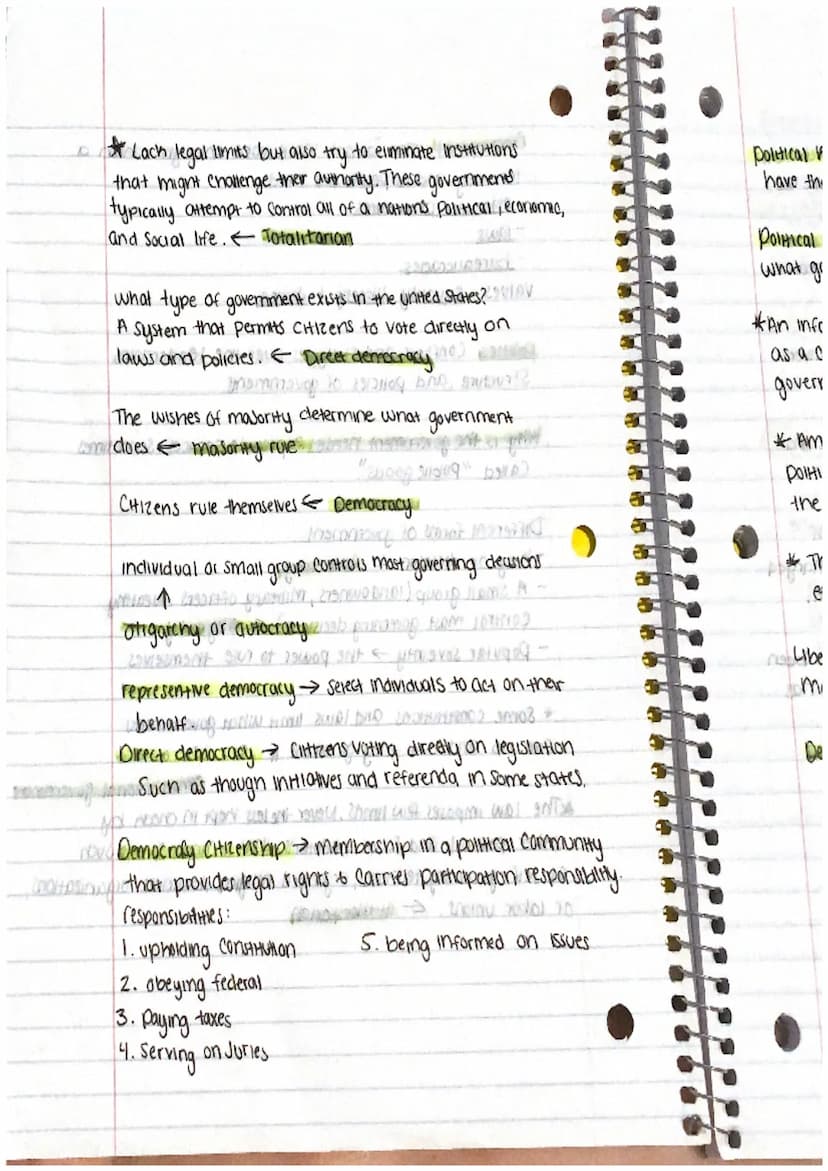 * Lack legal limits but also try to eliminate institutions
that might challenge their authority. These governments
typically attempt to control all of a nations political, economic,
and social life. ← Totalitarian
what type of government exists in the united states?
A system that permits citizens to vote directly on
laws and policies. ← Direct democracy
The wishes of majority determine what government
does ← majority rule
Citizens rule themselves ← Democracy
individual or small group controls most governing decisions
↑
oligarchy or autocracy
representive democracy → select individuals to act on their
behalf.
Direct democracy → citizens voting directly on legislation
Such as though initiatives and referenda in some states.
Democracy Citizenship → membership in a political community
that provides legal rights & carries participation responsibility.
responsibilities:
1. upholding constitution
5. being informed on issues
2. obeying federal
3. paying taxes
4. Serving on Juries
political
have
Political
what
*An
as a
govern
*
the
*